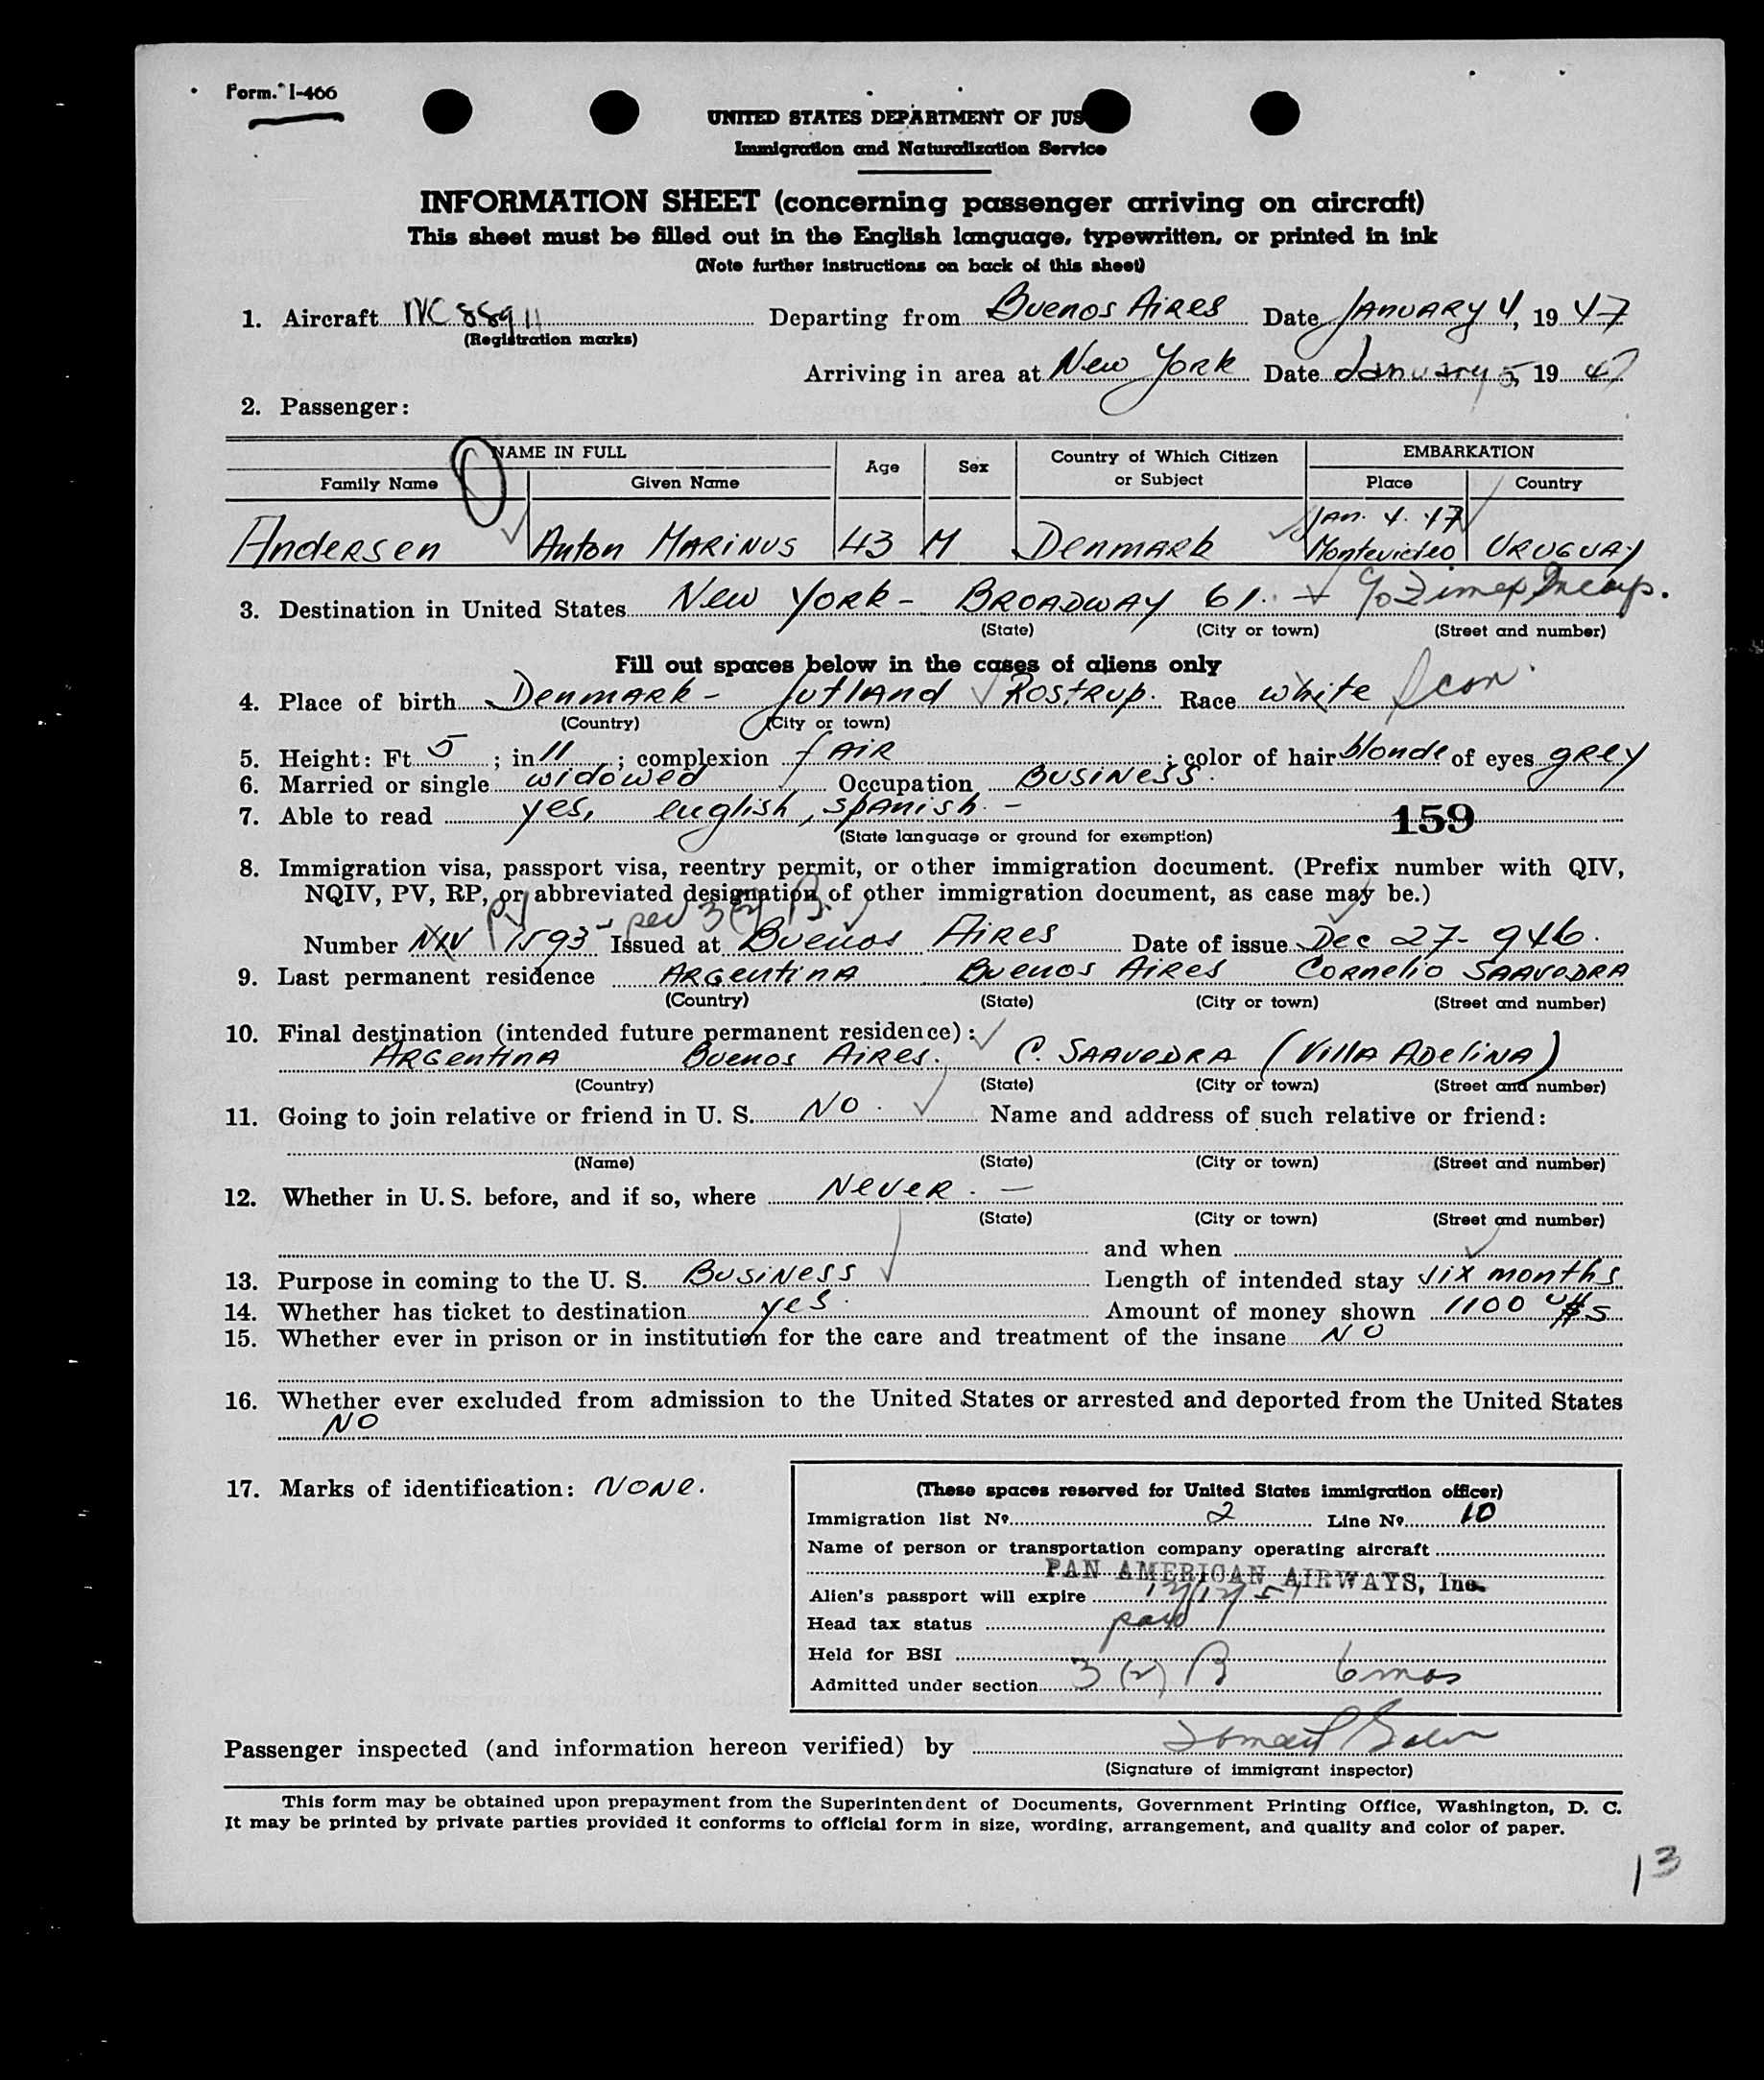 Form. I-466
UNITED STATES DEPARTMENT OF JUS
Immigration and Naturalization Service
INFORMATION SHEET (concerning passenger arriving on aircraft)
This sheet must be filled out in the English language, typewritten, or printed in ink
(Note further instructions on back of this sheet)
1. Aircraft NC 88911 Departing from Buenos Aires Date January 4, 19 47
(Registration marks)
Arriving in area at New York Date January 5, 19 47
2. Passenger:
NAME IN FULL Age Sex Country of Which Citizen or Subject EMBARKATION
Family Name Given Name Place Country
Jan. 4. 47
Andersen Anton Marinus 43 M Denmark Montevideo Uruguay
3. Destination in United States New York - Broadway 61. c/o
(State) (City or town) (Street and number)
Fill out spaces below in the cases of aliens only
4. Place of birth Denmark - Jutland Rostrup. Race white Scan.
(Country) (City or town)
5. Height: Ft 5 ; in 11 ; complexion fair ; color of hair blonde of eyes grey
6. Married or single widowed Occupation Business.
7. Able to read yes, english, spanish. -
(State language or ground for exemption)
159
8. Immigration visa, passport visa, reentry permit, or other immigration document. (Prefix number with QIV,
NQIV, PV, RP, or abbreviated designation of other immigration document, as case may be.)
PV sec 3(2) B.
Number NIV 1593 Issued at Buenos Aires Date of issue Dec 27- 946.
9. Last permanent residence Argentina Buenos Aires Cornelio Saavedra
(Country) (State) (City or town) (Street and number)
10. Final destination (intended future permanent residence):
Argentina Buenos Aires. C. Saavedra (Villa Adelina)
(Country) (State) (City or town) (Street and number)
11. Going to join relative or friend in U. S. No. Name and address of such relative or friend:
(Name) (State) (City or town) (Street and number)
12. Whether in U. S. before, and if so, where Never. -
(State) (City or town) (Street and number)
and when
13. Purpose in coming to the U. S. Business Length of intended stay six months
14. Whether has ticket to destination yes. Amount of money shown 1100 u$s
15. Whether ever in prison or in institution for the care and treatment of the insane No
16. Whether ever excluded from admission to the United States or arrested and deported from the United States
No
17. Marks of identification: None.
(These spaces reserved for United States immigration officer)
Immigration list No. 2 Line No. 10
Name of person or transportation company operating aircraft
PAN AMERICAN AIRWAYS, Inc.
Alien's passport will expire
Head tax status paid
Held for BSI
Admitted under section 3 (2) B 6 mos
Passenger inspected (and information hereon verified) by
(Signature of immigrant inspector)
This form may be obtained upon prepayment from the Superintendent of Documents, Government Printing Office, Washington, D. C.
It may be printed by private parties provided it conforms to official form in size, wording, arrangement, and quality and color of paper.
13